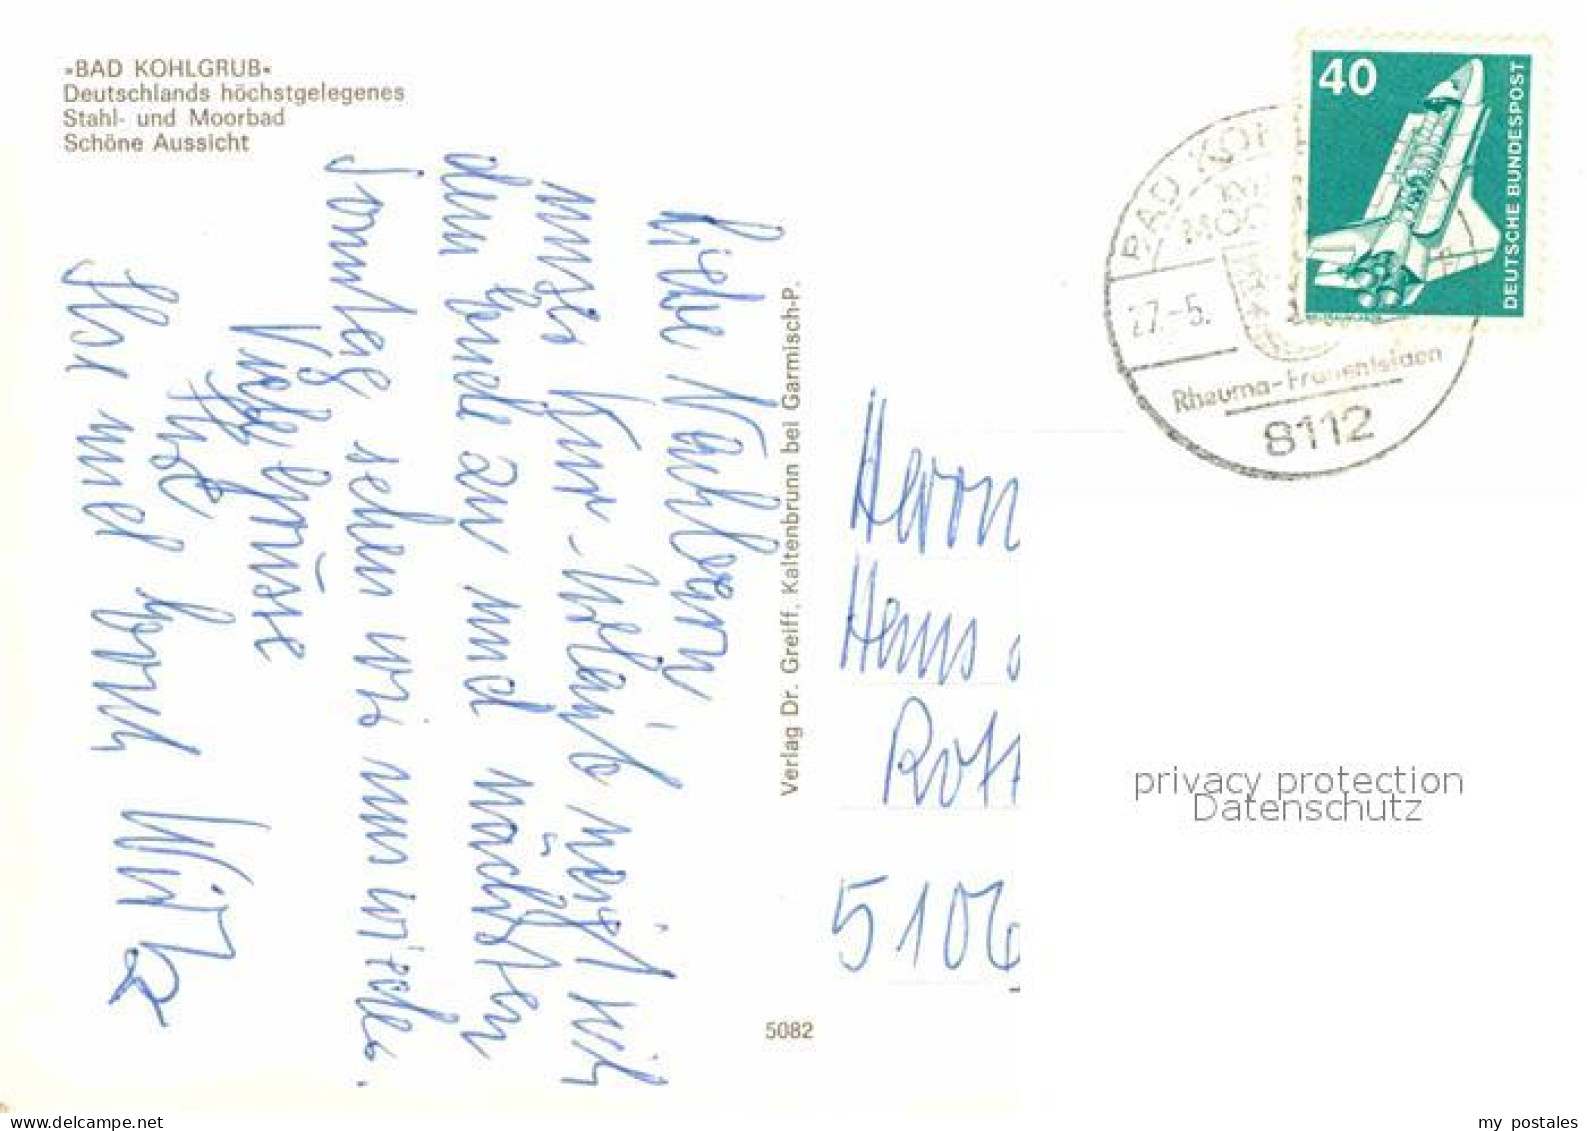 »BAD KOHLGRUB«
Deutschlands höchstgelegenes
Stahl- und Moorbad
Schöne Aussicht
Liebe Nachbarn,
unser Kur-Urlaub neigt sich
dem Ende zu und nächsten
Sonntag sehen wir uns wieder.
Viele Grüsse
Ihre
und
Verlag Dr. Greiff, Kaltenbrunn bei Garmisch-P.
5082
40
DEUTSCHE BUNDESPOST
BAD KOH
MOO
27.-5.
Rheuma-Frauenleiden
8112
Herrn
Hans
Rott
5106
privacy protection
Datenschutz
www.ansichtskartenversand.com
my postales